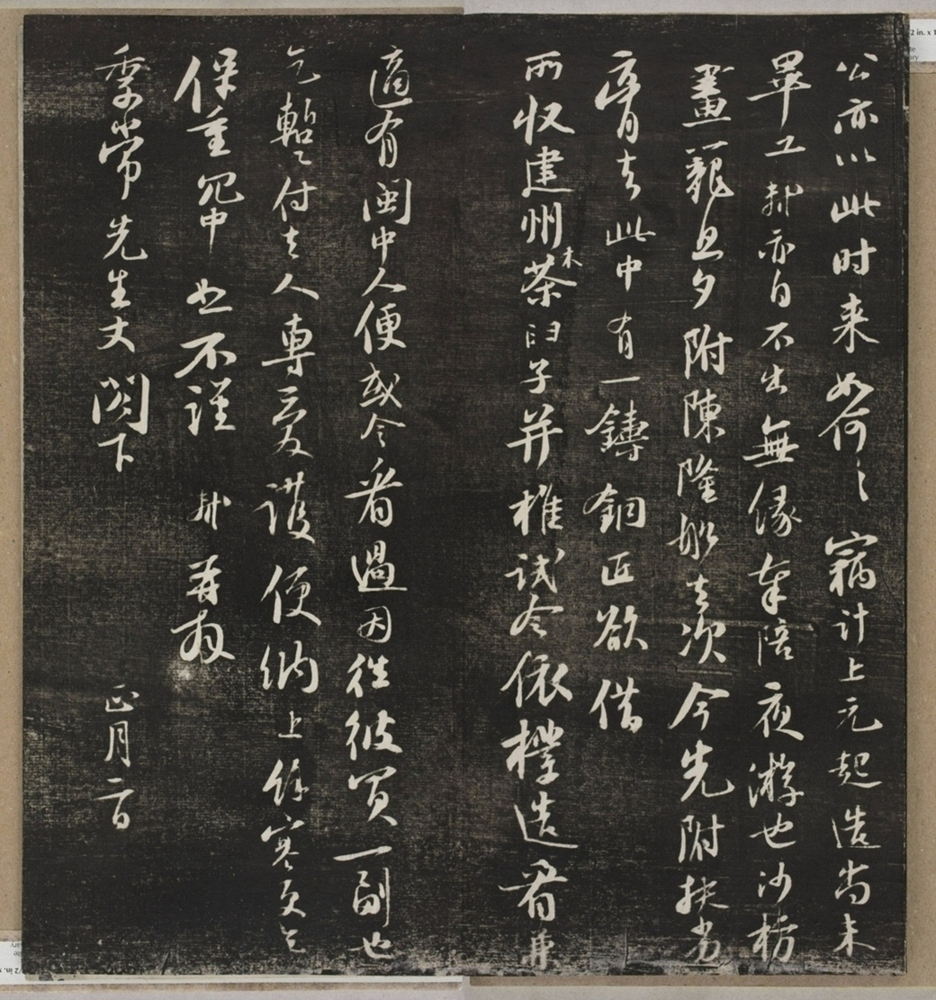 公亦以此时来如何〻竊計上元起造尚未
畢工軾亦自不出無緣奉陪夜游也沙枋
畫籠旦夕附陳隆船去次今先附扶劣
膏去此中有一鑄銅匠欲借
所収建州木茶臼子并椎試令依樣造看兼
適有閩中人便或令看過因往彼買一副也
乞暫付去人專愛護便納上餘寒更乞
保重冗中恕不謹軾再拜
季常先生丈閤下 正月二日
2 in. x 1